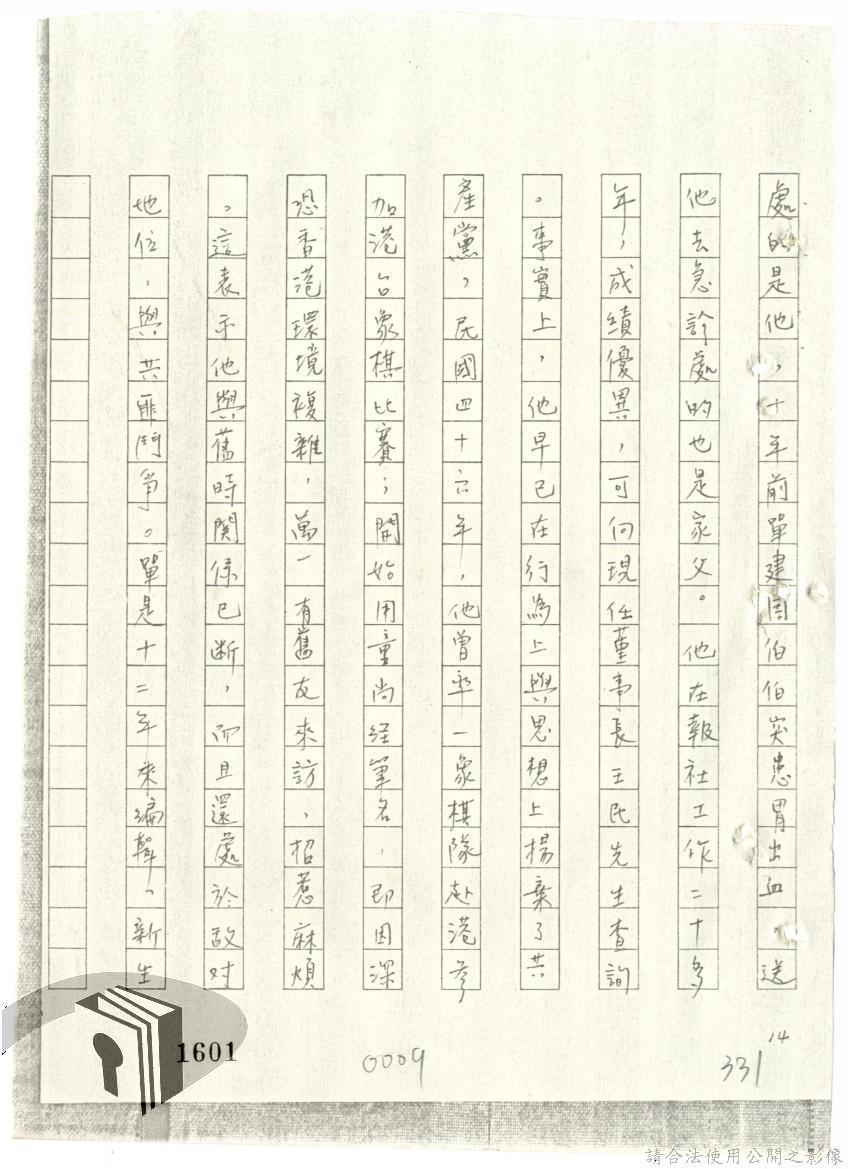 處的是他，十年前單建周伯伯突患胃出血，送
他去急診處的也是家父。他在報社工作二十多
年，成績優異，可向現任董事長王民先生查詢
。事實上，他早已在行為上與思想上揚棄了共
產黨，民國四十六年，他曾率一象棋隊赴港參
加港台象棋比賽；開始用童尚经筆名，即因深
恐香港環境複雜，萬一有舊友來訪，招惹麻煩
。這表示他與舊時関係已断，而且還處於敌对
地位，與共匪鬥爭。單是十二年來編輯、新生
14
331
0009
1601
請合法使用公開之影像